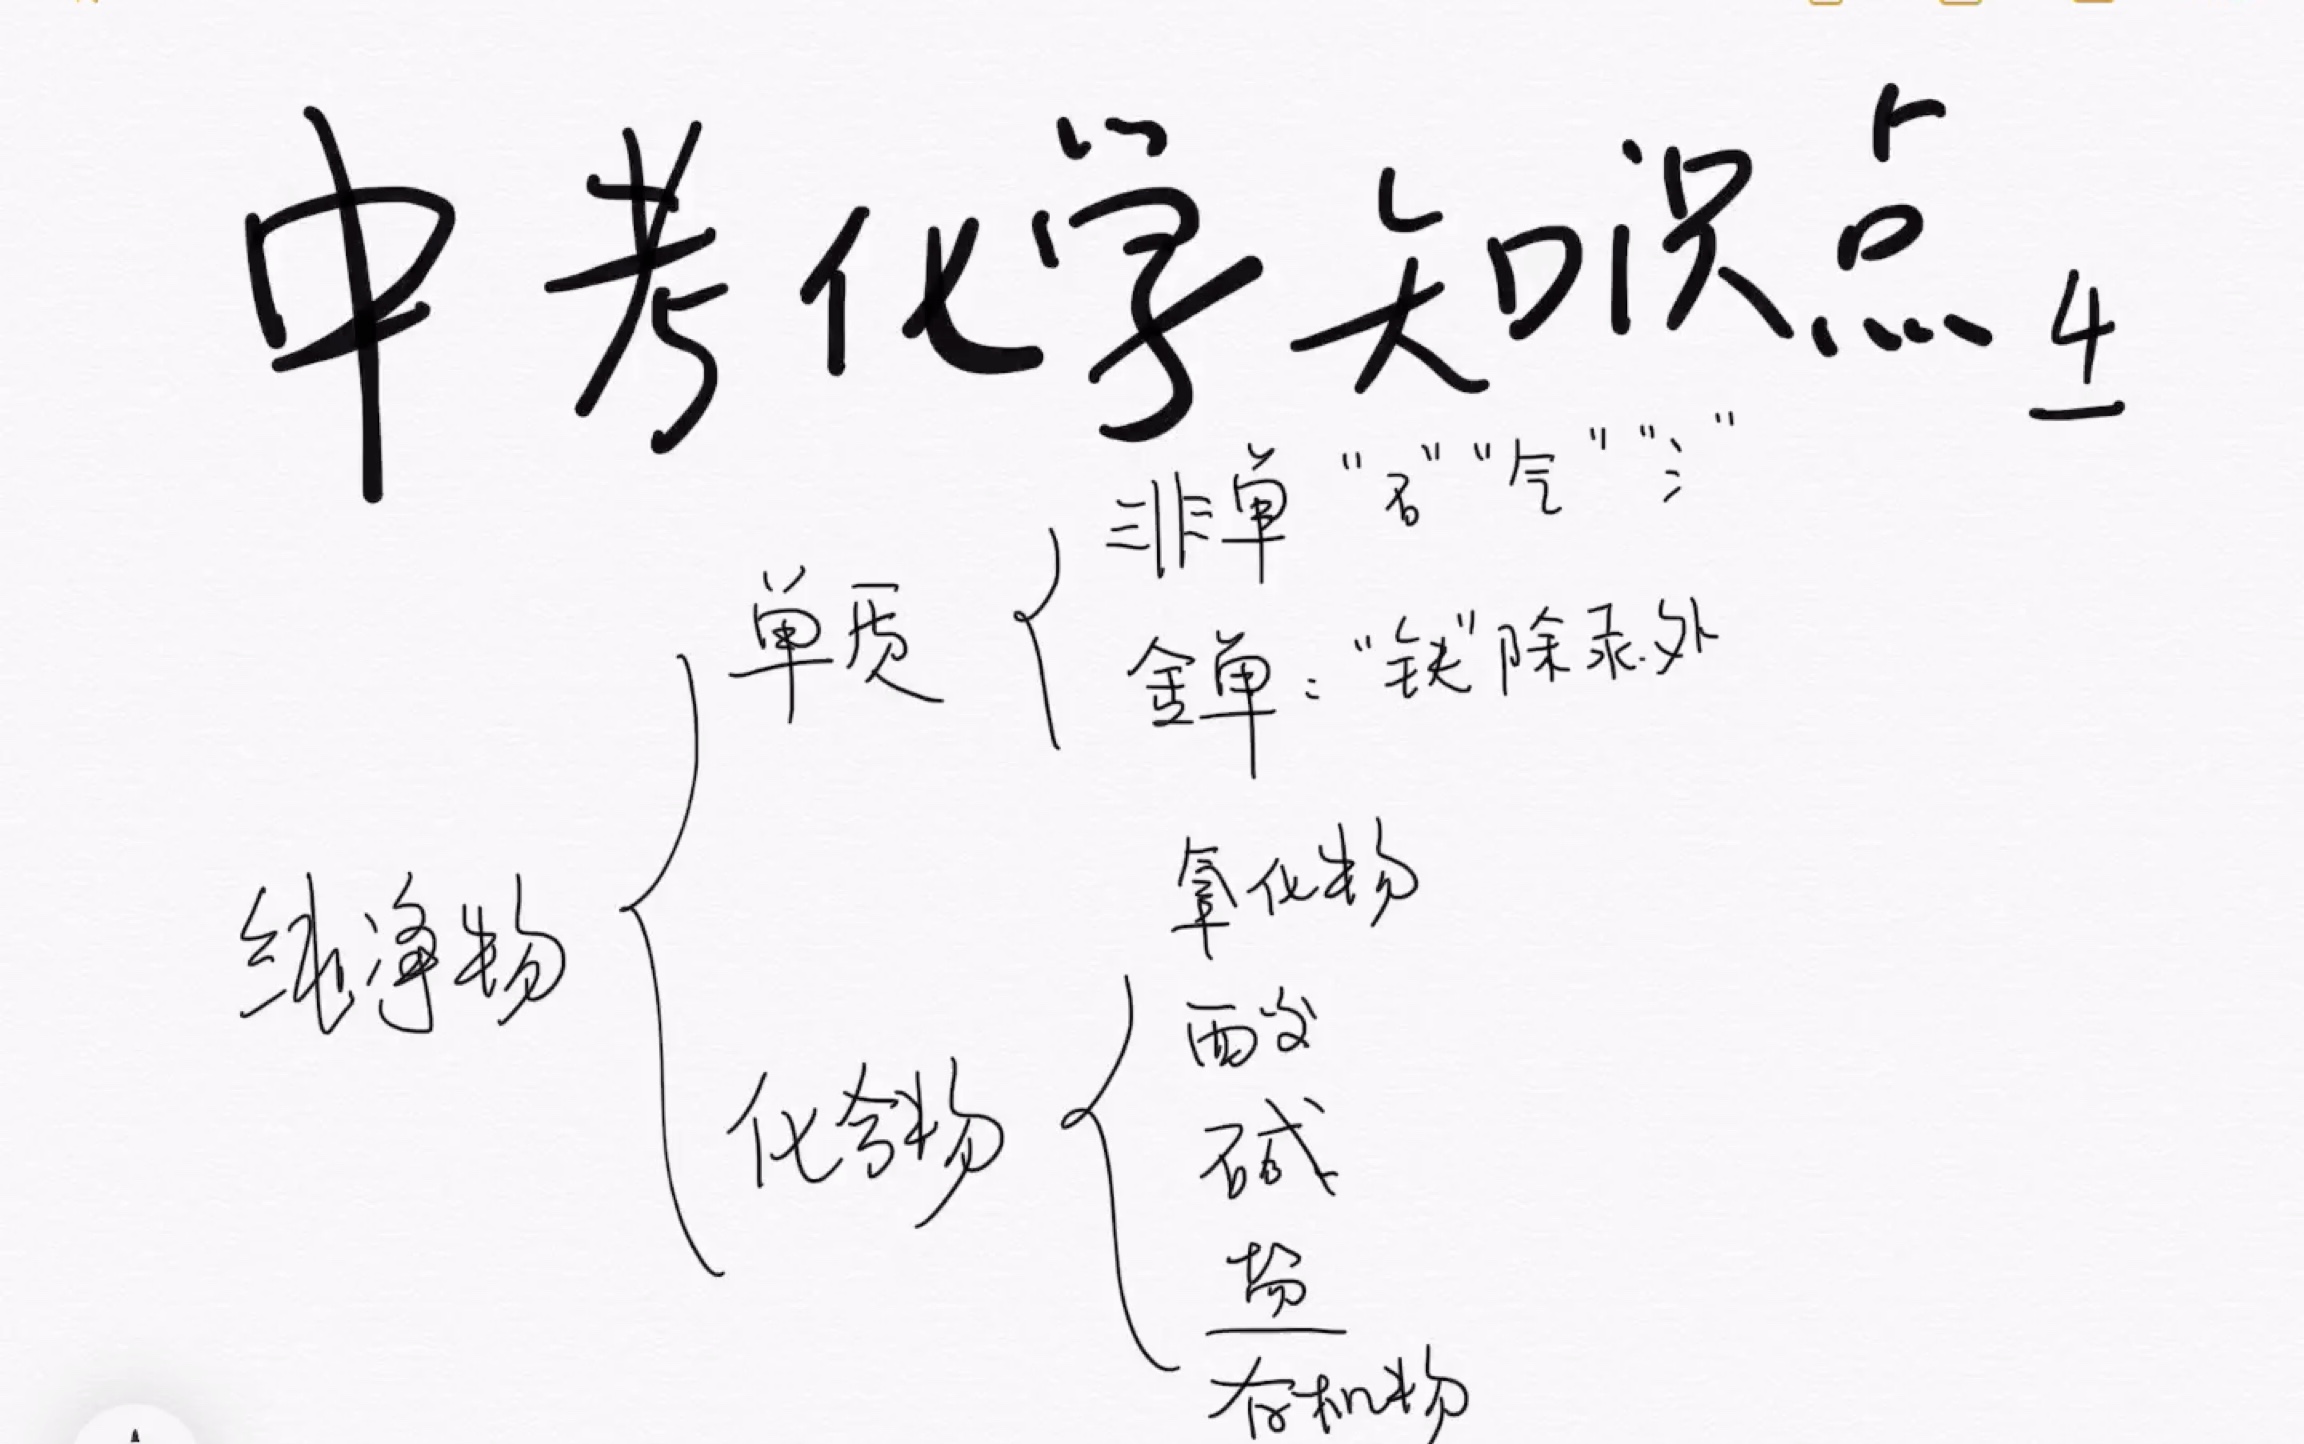 中考化学知识点4
非单 "石" "气" "氵"
单质
金单："钅" 除汞外
氧化物
纯净物
酸
化合物
碱
盐
有机物